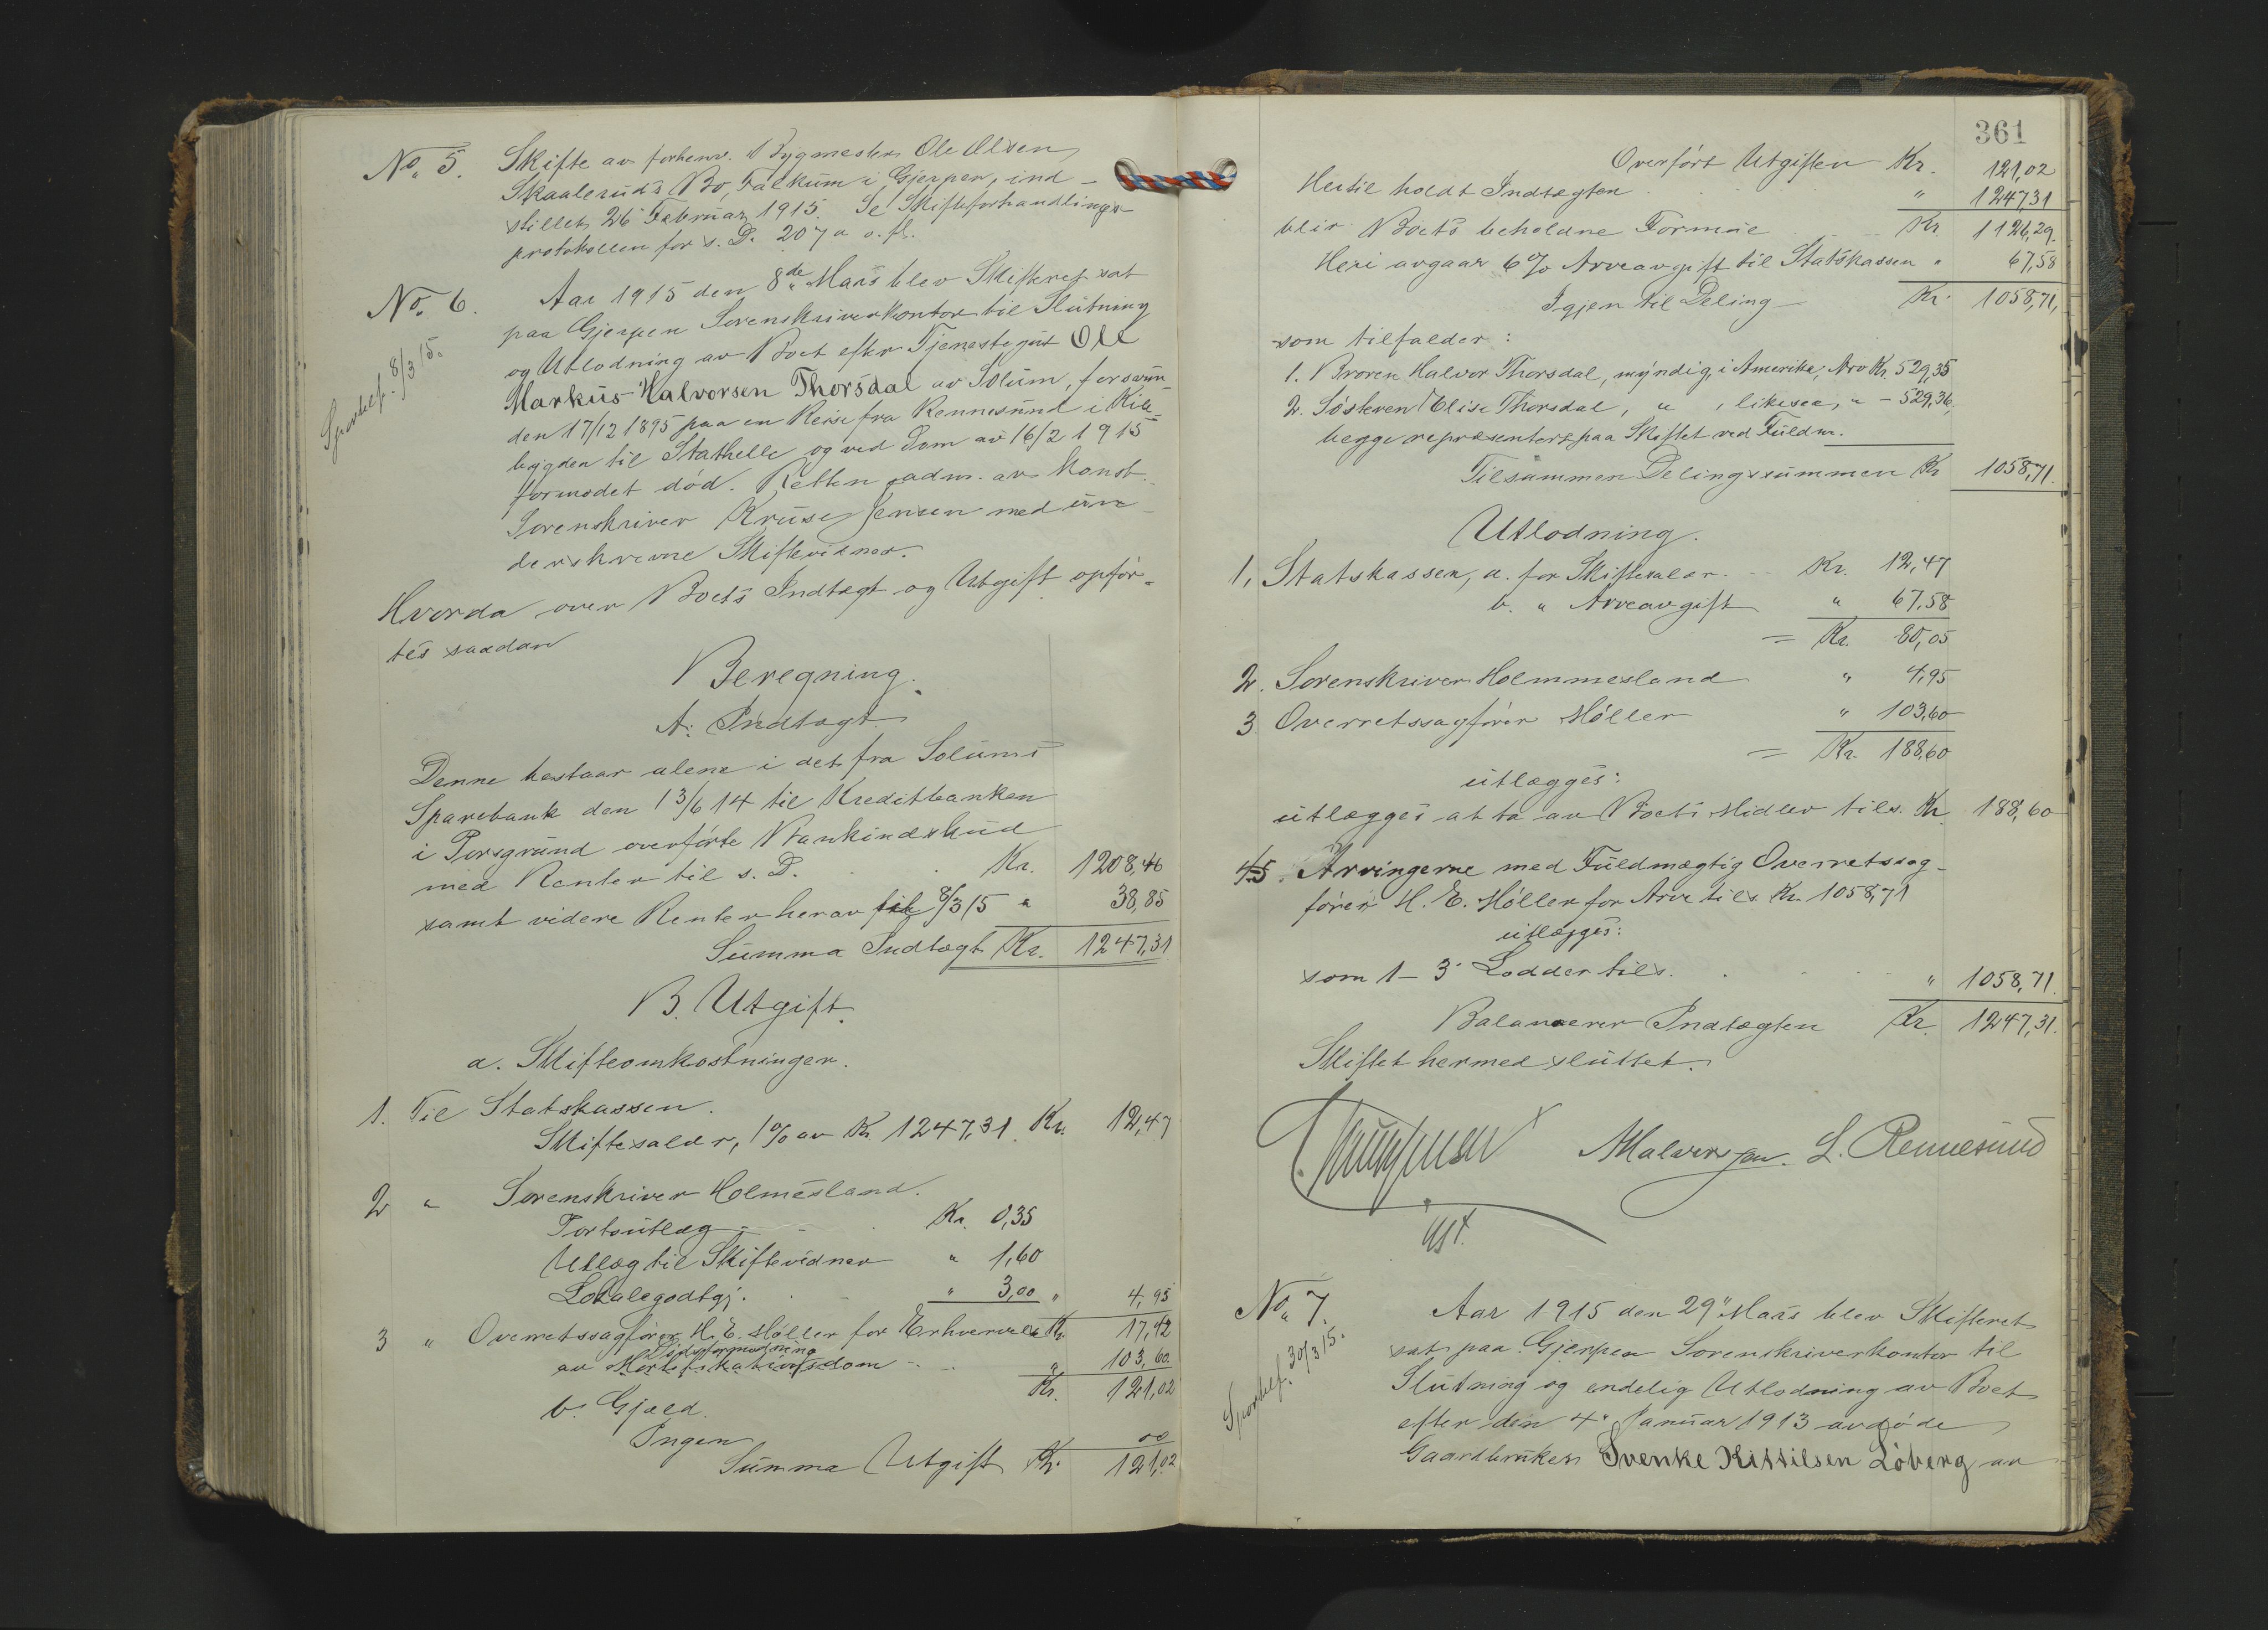 No. 5. Skifte av forhenv. Bygmester Ole Olsen
Skaalerud's Bo, Falkum i Gjerpen, ind-
stillet 26 Februar 1915. Se Skifteforhandlings-
protokollen for s. D. 207 a o. fl.
No. 6. Aar 1915 den 8de Mars blev Skifteret sat
paa Gjerpen Sorenskriverkontor til Slutning
og Utlodning av Boet efter Tjenestegut Ole
Markus Halvorsen Thorsdal av Solum, forsvun-
den 17/12 1895 paa en Reise fra Rennesund i Kile-
bygden til Stathelle og ved Dom av 16/2 1915
formodet død. Retten adm. av Konst.
Sorenskriver Kruse Jensen med un-
derskrevne Skiftevidner.
8/3 15.
Hvorda over Boets Indtægt og Utgift opfør-
tes saadan
Beregning.
A. Indtægt
Denne bestaar alene i det fra Solums
Sparebank den 13/6 14 til Kreditbanken
i Porsgrund overførte Bankindskud
med Renter til s. D. Kr. 1208,46
samt videre Renter herav til 8/3 15 " 38,85
Summa Indtægt Kr. 1247,31
B. Utgift.
a. Skifteomkostninger.
1. Til Statskassen.
Skiftesalær, 1% av Kr. 1247,31. Kr. 12,47
2 " Sorenskriver Holmesland.
Portoutlæg Kr. 0,35
Utlæg til Skiftevidner " 1,60
Lokalegodtgj. " 3,00 " 4,95
Kr. 17,42
3 " Overretssagfører H. E. Møller for Erhvervelse
Dødsformodning
av Mortifikationsdom " 103,60
Kr. 121,02
b. Gjæld.
Ingen 00
Summa Utgift Kr. 121,02
361
Overført Utgiften Kr. 121,02
Hertil holdt Indtægten " 1247,31
blir Boets beholdne Formue Kr. 1126,29.
Heri avgaar 6% Arveavgift til Statskassen " 67,58
Igjen til Deling Kr. 1058,71,
som tilfalder:
1. Broren Halvor Thorsdal, myndig, i Amerika, Arv Kr. 529,35
2. Søsteren Elise Thorsdal, " , likesaa, " - 529,36,
begge repræsentert paa Skiftet ved Fuldm.
Tilsammen Delingssummen Kr 1058,71.
Utlodning.
1, Statskassen, a. for Skiftesalær. Kr. 12,47
b. " Arveavgift " 67,58
= Kr. 80,05
2. Sorenskriver Holmmesland " 4,95
3 Overretssagfører Møller " 103,60
= Kr. 188,60
utlægges:
utlægges at ta av Boets Midler tils. Kr. 188,60
4-5. Arvingerne med Fuldmægtig Overretssag-
fører H. E. Møller for Arv tils. Kr. 1058,71
utlægges:
som 1-3 Lodder tils. " 1058,71.
Balancerer Indtægten Kr. 1247,31.
Skiftet hermed sluttet.
L. Rennesund
No. 7. Aar 1915 den 29" Mars blev Skifteret
sat paa Gjerpen Sorenskriverkontor til
Slutning og endelig Utlodning av Boet
efter den 4" Januar 1913 avdøde
Gaardbruker Svenke Kittilsen Løberg av
30/3 15.